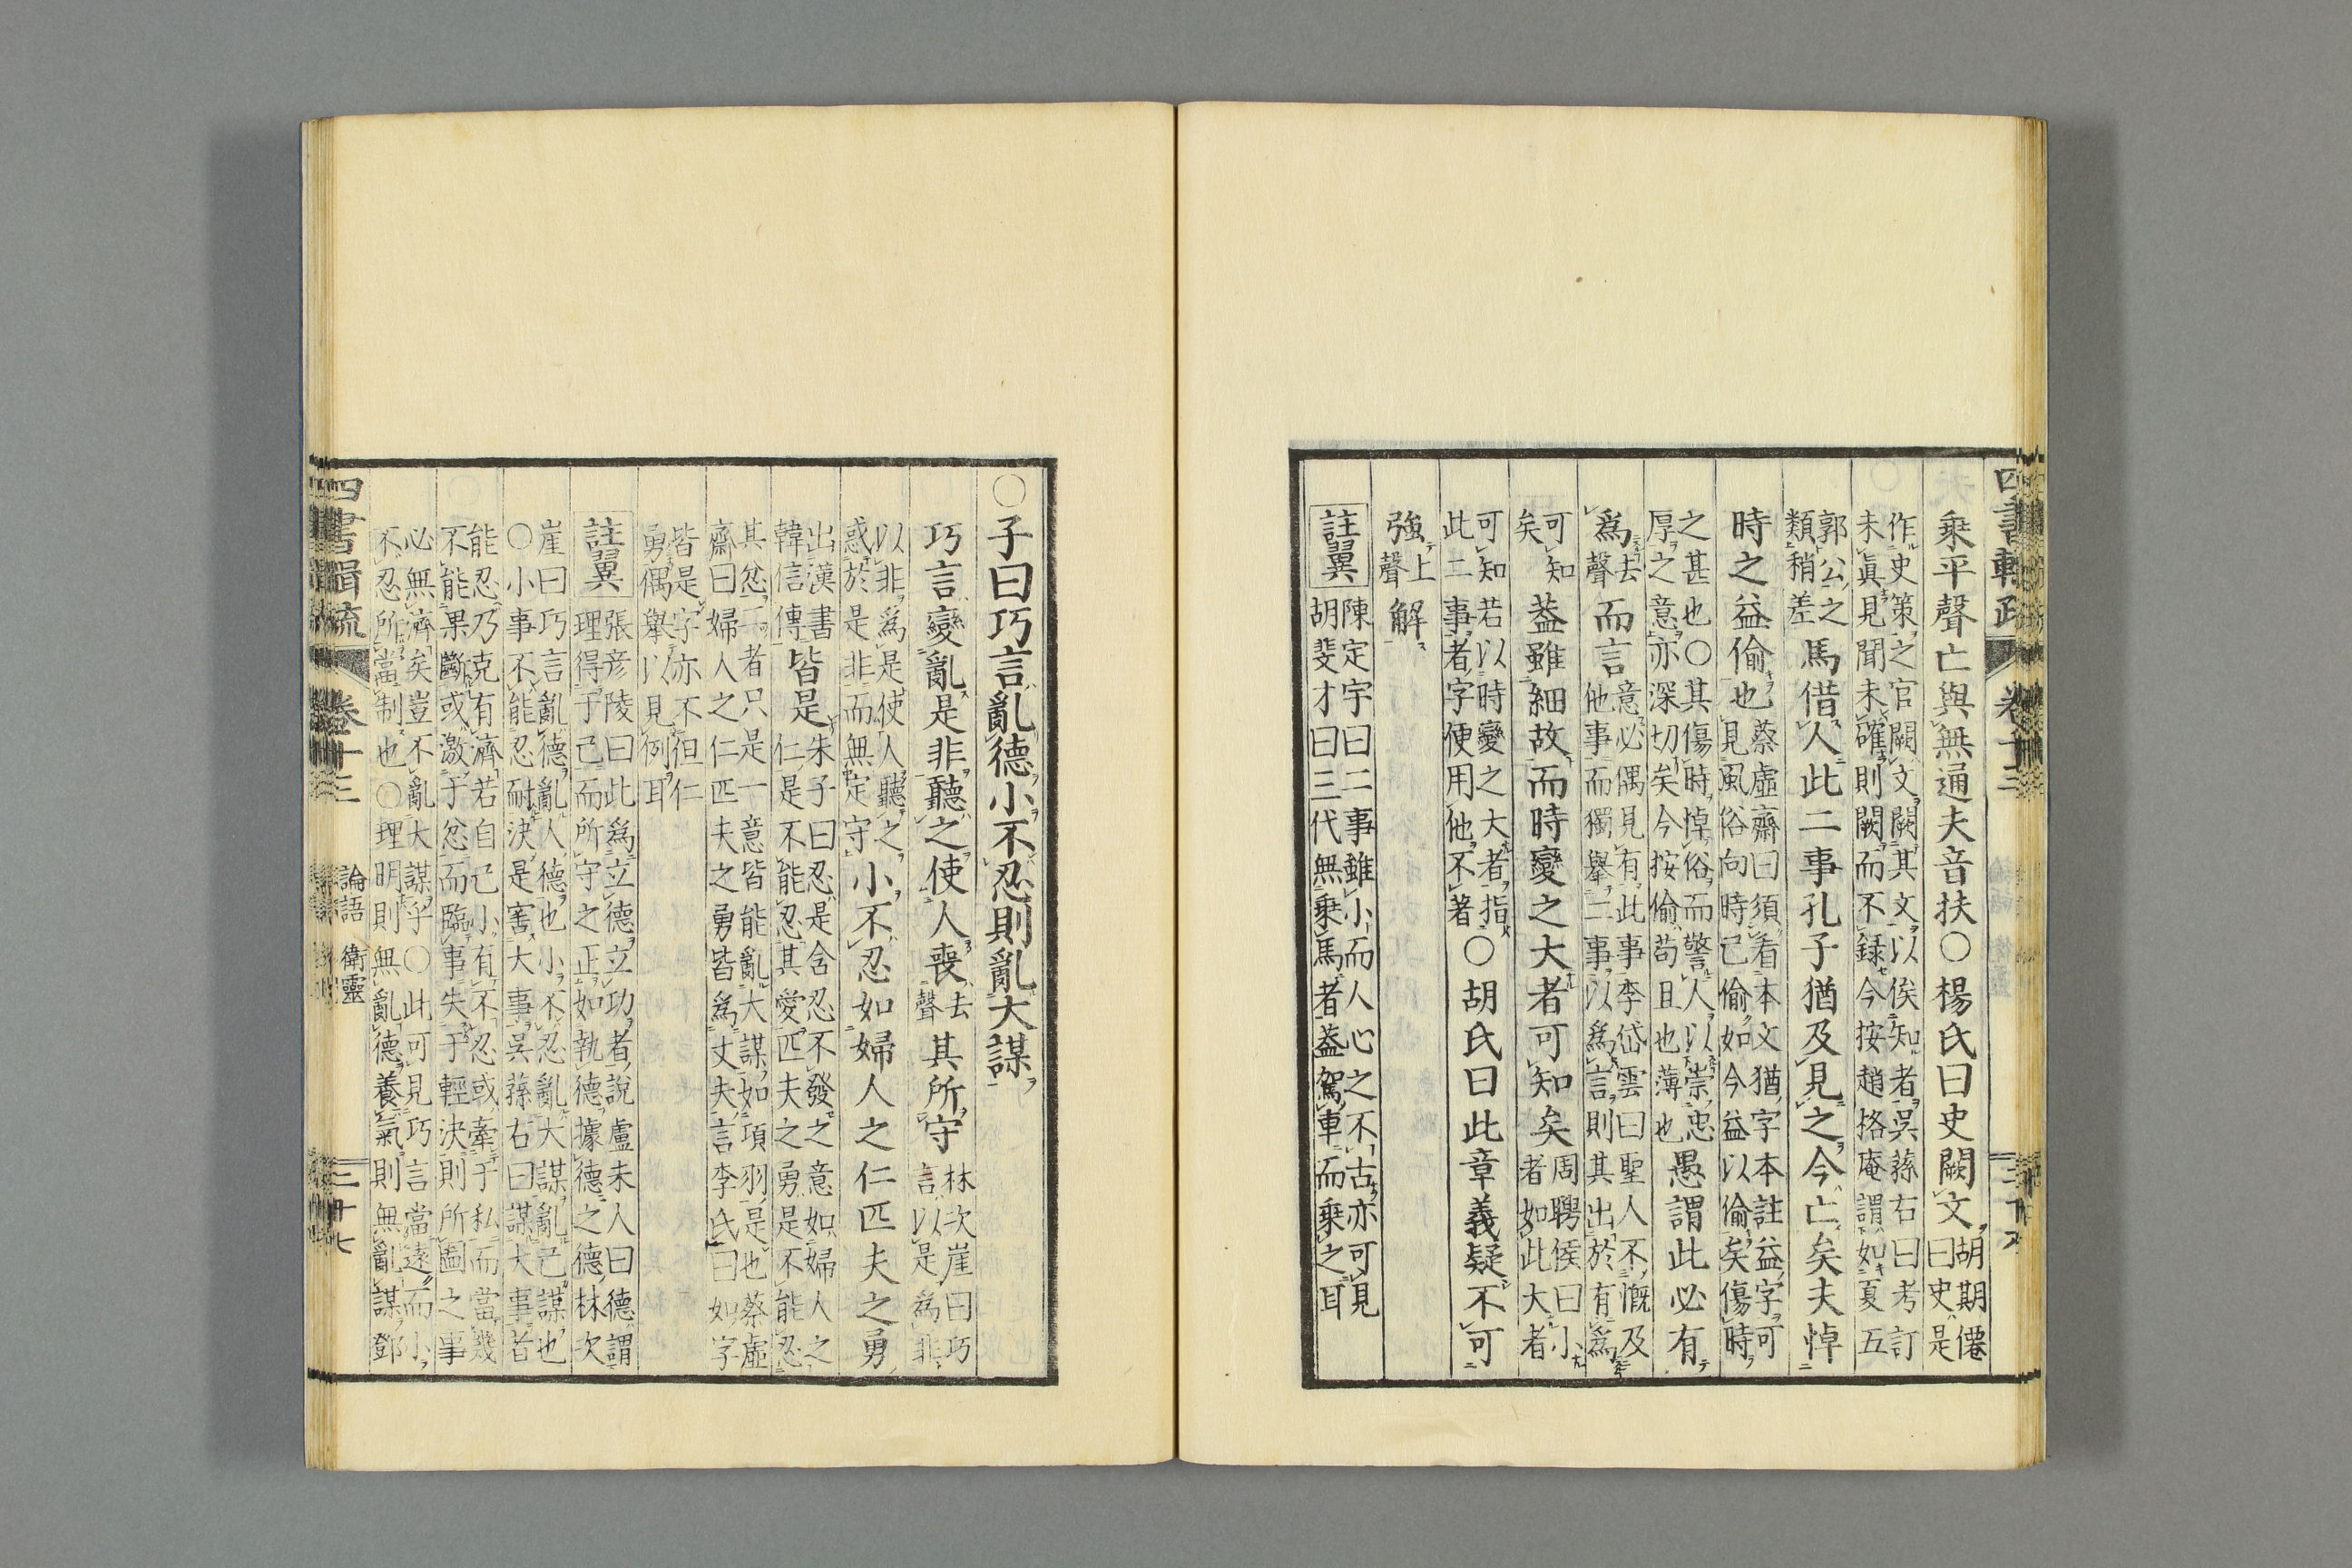 乗平聲亡與無通夫音扶○楊氏曰史闕文胡期僊曰史是
作史策之官闕文闕其文以俟知者呉蓀右曰考訂
未眞見聞未確則闕而不録今按趙挌庵謂如夏五
郭公之類稍差馬借人此二事孔子猶及見之今亡矣夫悼
時之益偷也蔡虛齋曰須看本文猶字本註益字可見風俗向時已偷如今益以偷矣傷時
之甚也○其傷時悼俗而警人以崇忠
厚之意亦深切矣今按偷苟且也薄也愚謂此必有
爲去聲而言意必偶見有此事李岱雲曰聖人不慨及他事而獨舉二事以爲言則其出於有爲
可知矣葢雖細故而時變之大者可知矣周聘侯曰小者如此大者
可知若以時變之大者指此二事者字便用他不著○胡氏曰此章義疑不可
強上聲解
註翼陳定宇曰二事雖小而人心之不古亦可見
胡斐才曰三代無乗馬者葢駕車而乗之耳
四書輯疏 卷十三
○子曰巧言亂德小不忍則亂大謀
巧言變亂是非聽之使人喪去聲其所守林次崖曰巧言以是爲非
以非爲是使人聽之惑於是非而無定守小不忍如婦人之仁匹夫之勇
出漢書韓信傳皆是朱子曰忍是含忍不發之意如婦人之仁是不能忍其愛匹夫之勇是不能忍
其忿二者只是一意皆能亂大謀如項羽是也蔡虛
齋曰婦人之仁匹夫之勇皆爲丈夫言李氏曰如字
皆是字亦不但仁
勇偶舉以見例耳
註翼張彦陵曰此爲立德立功者說盧未人曰德謂
理得于己而所守之正如執德據德之德林次
崖曰巧言亂德亂人德也小不忍亂大謀亂己謀也
○小事不能忍耐決是害大事呉蓀右曰謀大事者
能忍乃克有濟若自己小有不忍或牽于私而當幾
不能果斷或激于忿而臨事失于輕決則所圖之事
必無濟矣豈不亂大謀乎○此可見巧言當遠而小
不忍所當制也○理明則無亂德養氣則無亂謀鄧
四書輯疏 卷十三 論語 衛靈 三十七